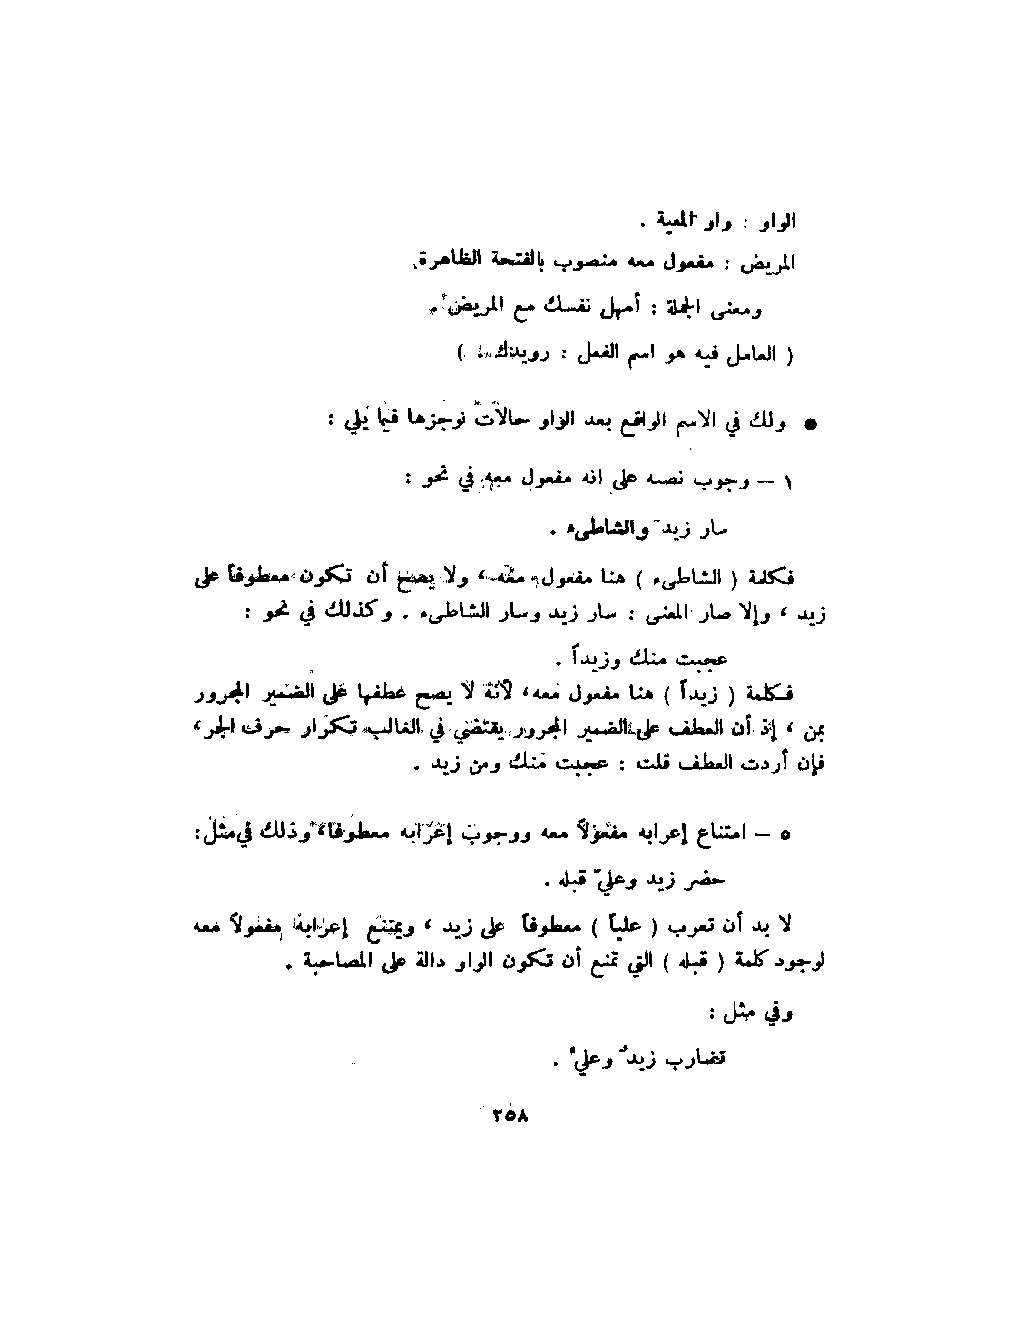 الواو : واو المعية .
المريض : مفعول معه منصوب بالفتحة الظاهرة.
ومعنى الجملة : أمهل نفسك مع المريض .
( العامل فيه هو اسم الفعل : رويدك . )
● ولك في الاسم الواقع بعد الواو حالات نوجزها فيما يلي :
١ – وجوب نصبه على انه مفعول معه في نحو :
سار زيد والشاطىء .
فكلمة ( الشاطىء ) هنا مفعول معه ، ولا يصح أن تكون معطوفاً على
زيد ، وإلا صار المعنى : سار زيد وسار الشاطىء . وكذلك في نحو :
عجبت منك وزيداً .
فكلمة ( زيداً ) هنا مفعول معه، لأنه لا يصح عطفها على الضمير المجرور
بمن ، إذ أن العطف على الضمير المجرور يقتضي في الغالب تكرار حرف الجر،
فإن أردت العطف قلت : عجبت منك ومن زيد .
٥ – امتناع إعرابه مفعولاً معه ووجوب إعرابه معطوفاً، وذلك في مثل:
حضر زيد وعليّ قبله .
لا بد أن تعرب ( علياً ) معطوفاً على زيد ، ويمتنع إعرابه مفعولاً معه
لوجود كلمة ( قبله ) التي تمنع أن تكون الواو دالة على المصاحبة .
وفي مثل :
تضارب زيدٌ وعليٌ .
٢٥٨